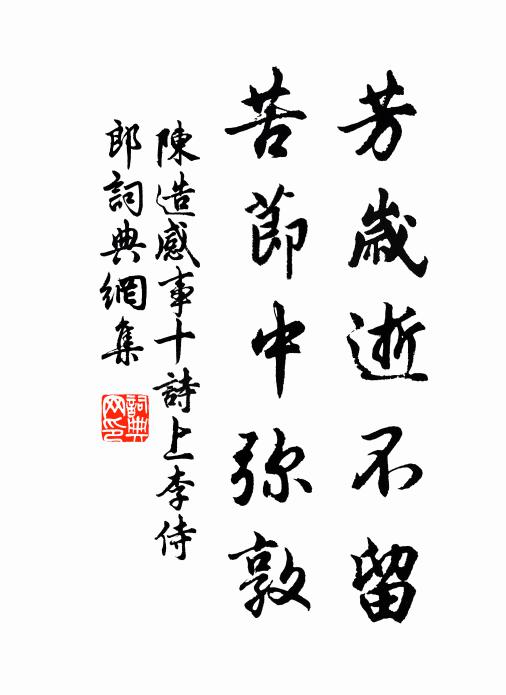 芳歲逝不留
苦節中弥敦
陳造感事十詩上李侍
郎詞典網集
詞典
网印